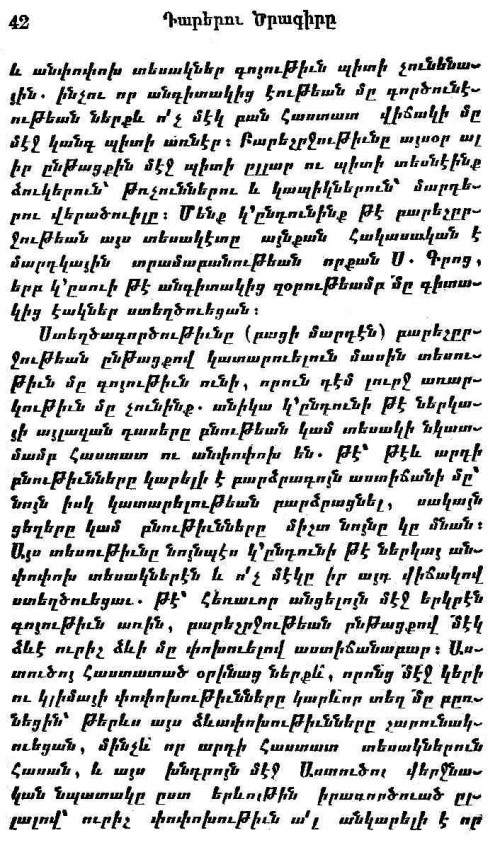 42
Դարերու Ծրագիրը
և անփոփոխ տեսակներ գոյութիւն պիտի չունենա-
յին. ինչու որ անգիտակից էութեան մը գործունէ-
ութեան ներքև ո՛չ մէկ բան հաստատ վիճակի մը
մէջ կանգ պիտի առնէր: Բարեշրջութիւնը այսօր ալ
իր ընթացքին մէջ պիտի ըլլար ու պիտի տեսնէինք
ձուկերուն՝ թռչուններու և կապիկներուն՝ մարդե-
րու վերածուիլը: Մենք կ՚ընդունինք թէ բարեշըր-
ջութեան այս տեսակէտը այնքան հակասական է
մարդկային տրամաբանութեան որքան Ս. Գրոց,
երբ կ՚ըսուի թէ անգիտակից զօրութեամբ մը գիտա-
կից էակներ ստեղծուեցան:
Ստեղծագործութիւնը (բացի մարդէն) բարեշըր-
ջութեան ընթացքով կատարուելուն մասին տեսու-
թիւն մը գոյութիւն ունի, որուն դէմ լուրջ առար-
կութիւն մը չունինք. անիկա կ՚ընդունի թէ ներկա-
յի այլազան դասերը բնութեան կամ տեսակի նկատ-
մամբ հաստատ ու անփոփոխ են. թէ՝ թէև արդի
բնութիւնները կարելի է բարձրագոյն աստիճանի մը՝
նոյն իսկ կատարելութեան բարձրացնել, սակայն
ցեղերը կամ բնութիւնները միշտ նոյնը կը մնան:
Այս տեսութիւնը նոյնպէս կ՚ընդունի թէ ներկայ ան-
փոփոխ տեսակներէն և ո՛չ մէկը իր այդ վիճակով
ստեղծուեցաւ. թէ՝ հեռաւոր անցելոյն մէջ երկրէն
գոյութիւն առին, բարեշրջութեան ընթացքով մէկ
ձևէ ուրիշ ձևի մը փոխուելով աստիճանաբար: Աս-
տուծոյ հաստատած օրինաց ներքև, որոնց մէջ կերի
ու կլիմայի փոփոխութիւնները կարևոր տեղ մը բըռ-
նեցին՝ թերևս այս ձևափոխութիւնները շարունակ-
ուեցան, մինչև որ արդի հաստատ տեսակներուն
հասան, և այս խնդրոյն մէջ Աստուծոյ վերջնա-
կան նպատակը ըստ երևոյթին իրագործուած ըլ-
լալով՝ ուրիշ փոփոխութիւն ա՛լ անկարելի է որ